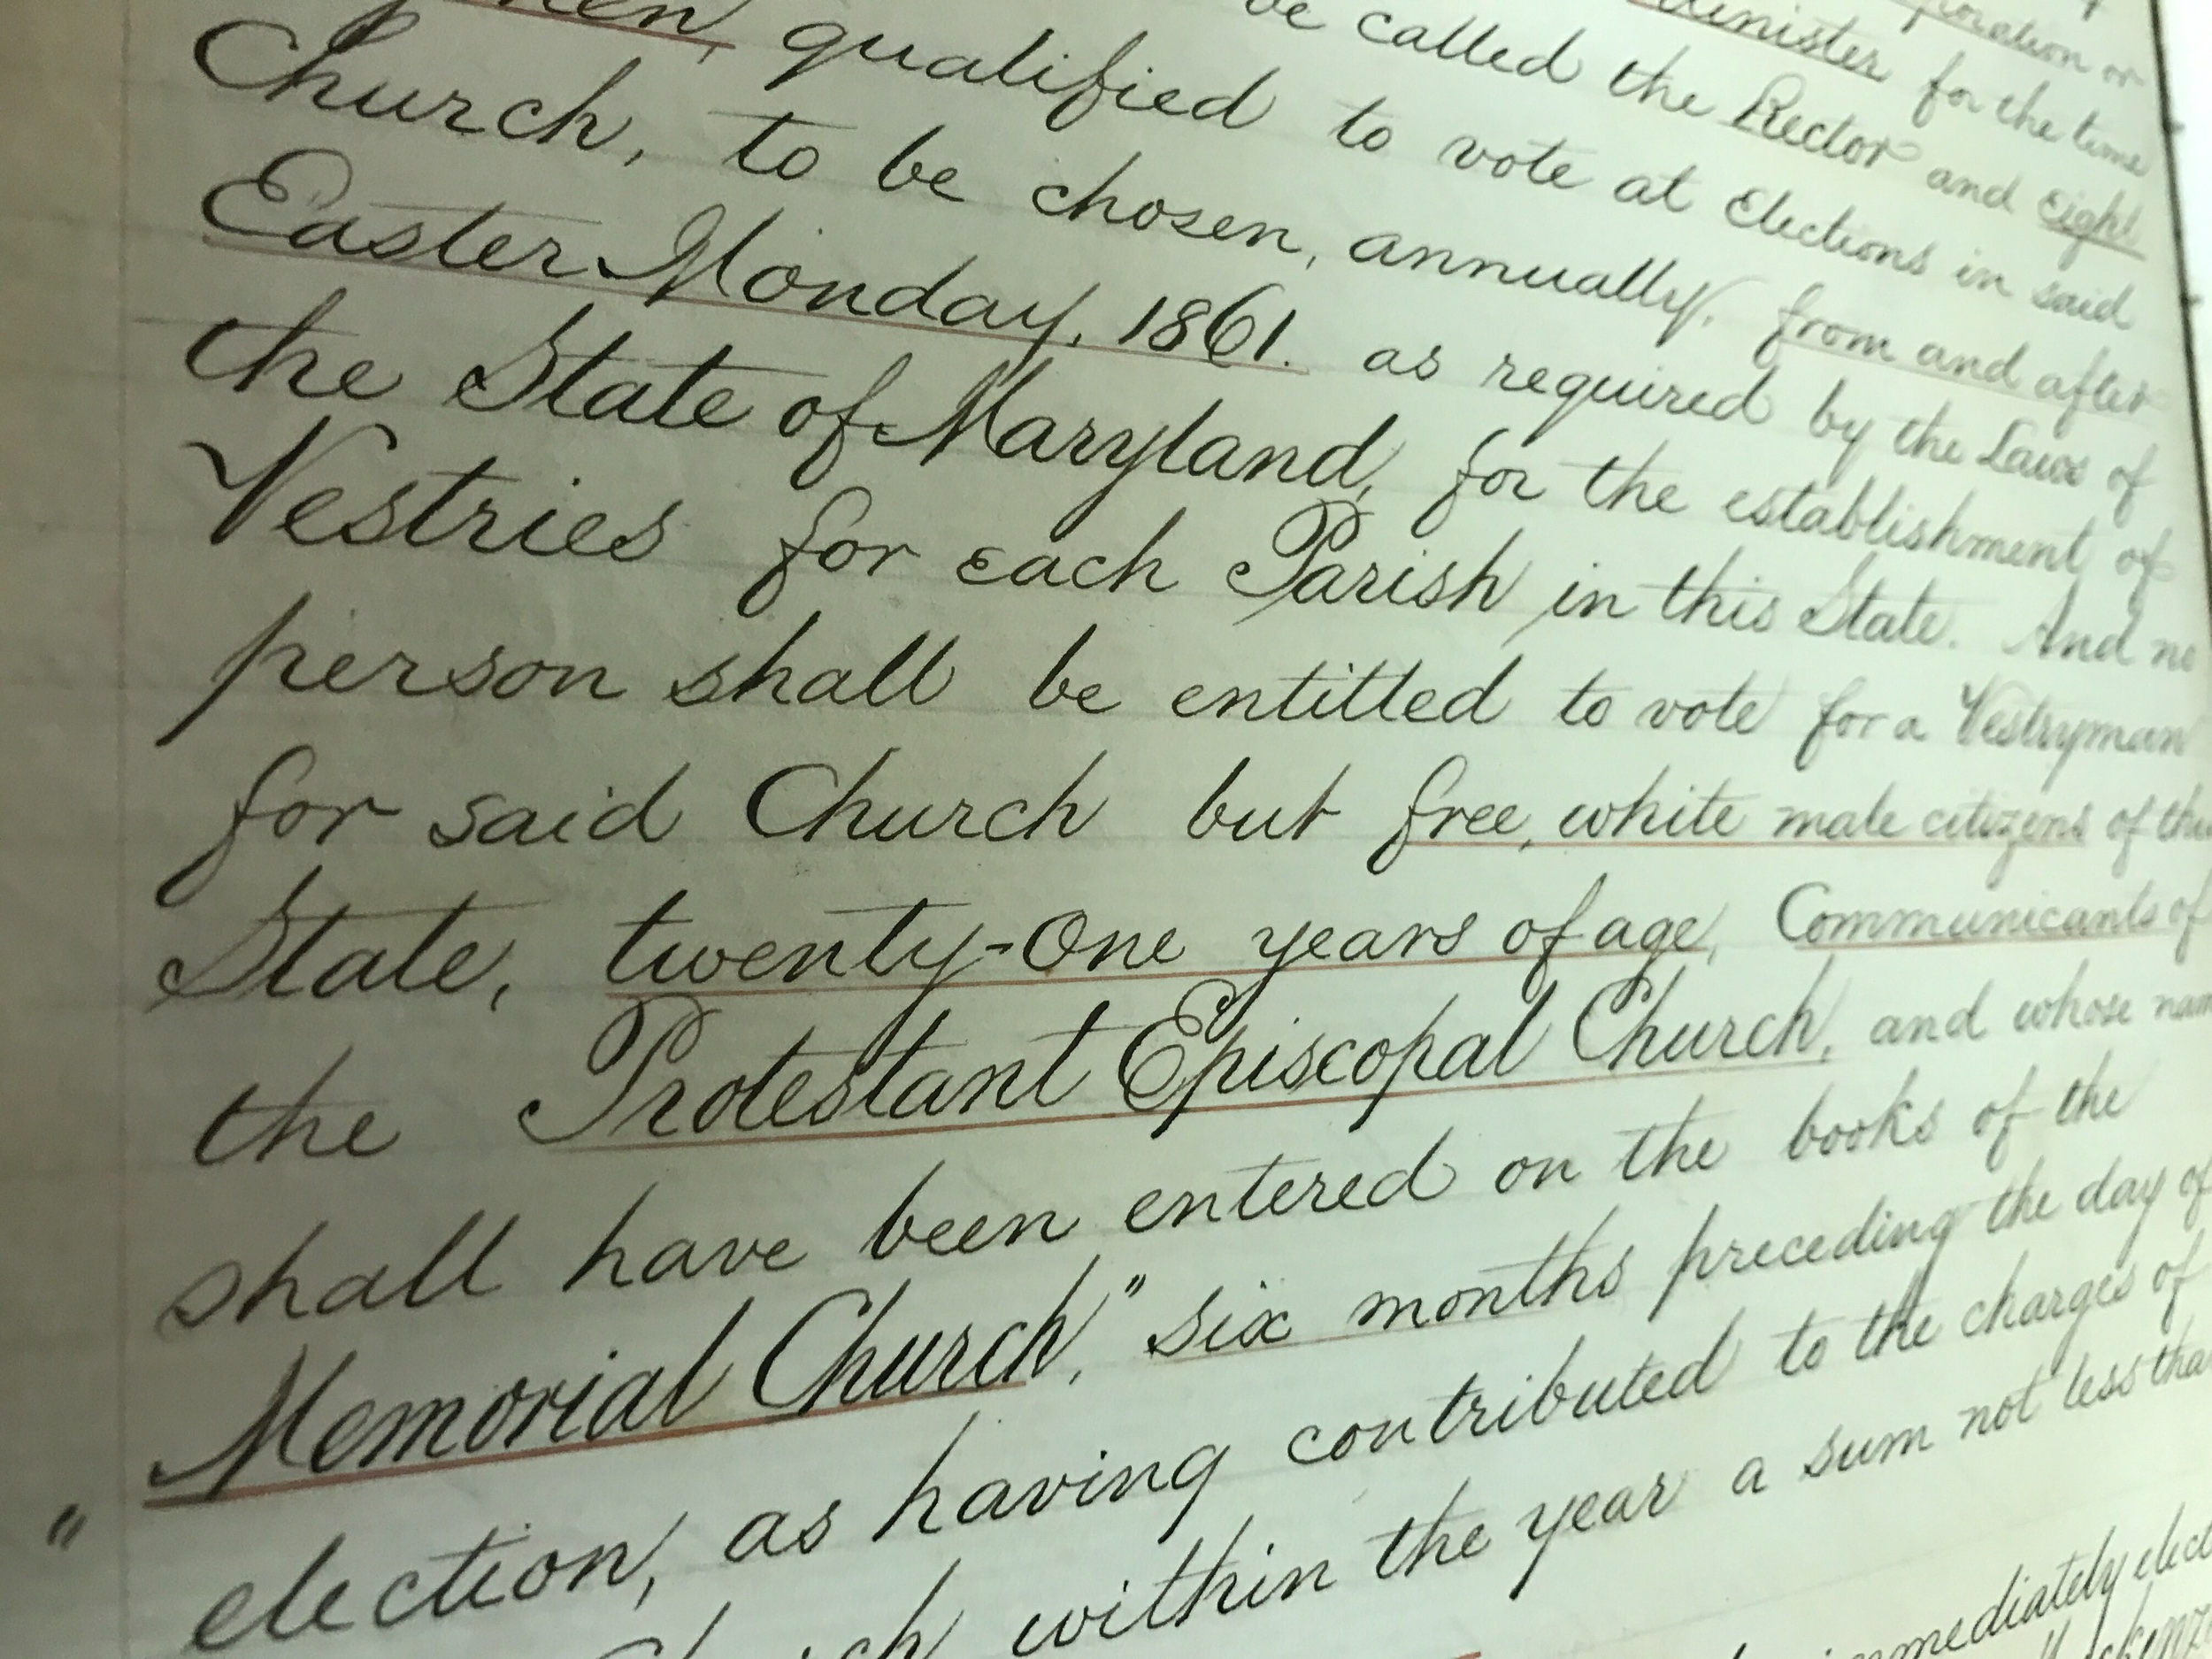 or
Minister for the time
be called the Rector and Eight
men, qualified to vote at Elections in said
Church, to be chosen, annually, from and after
Easter Monday, 1861. as required by the Laws of
the State of Maryland, for the establishment of
Vestries for each Parish in this State. And no
person shall be entitled to vote for a Vestryman
for said Church but free, white male citizens of this
State, twenty-One years of age, Communicants of
the Protestant Episcopal Church, and whose nam
shall have been entered on the books of the
"Memorial Church," six months preceding the day of
election, as having contributed to the charges of
Church within the year a sum not less than
immediately elec